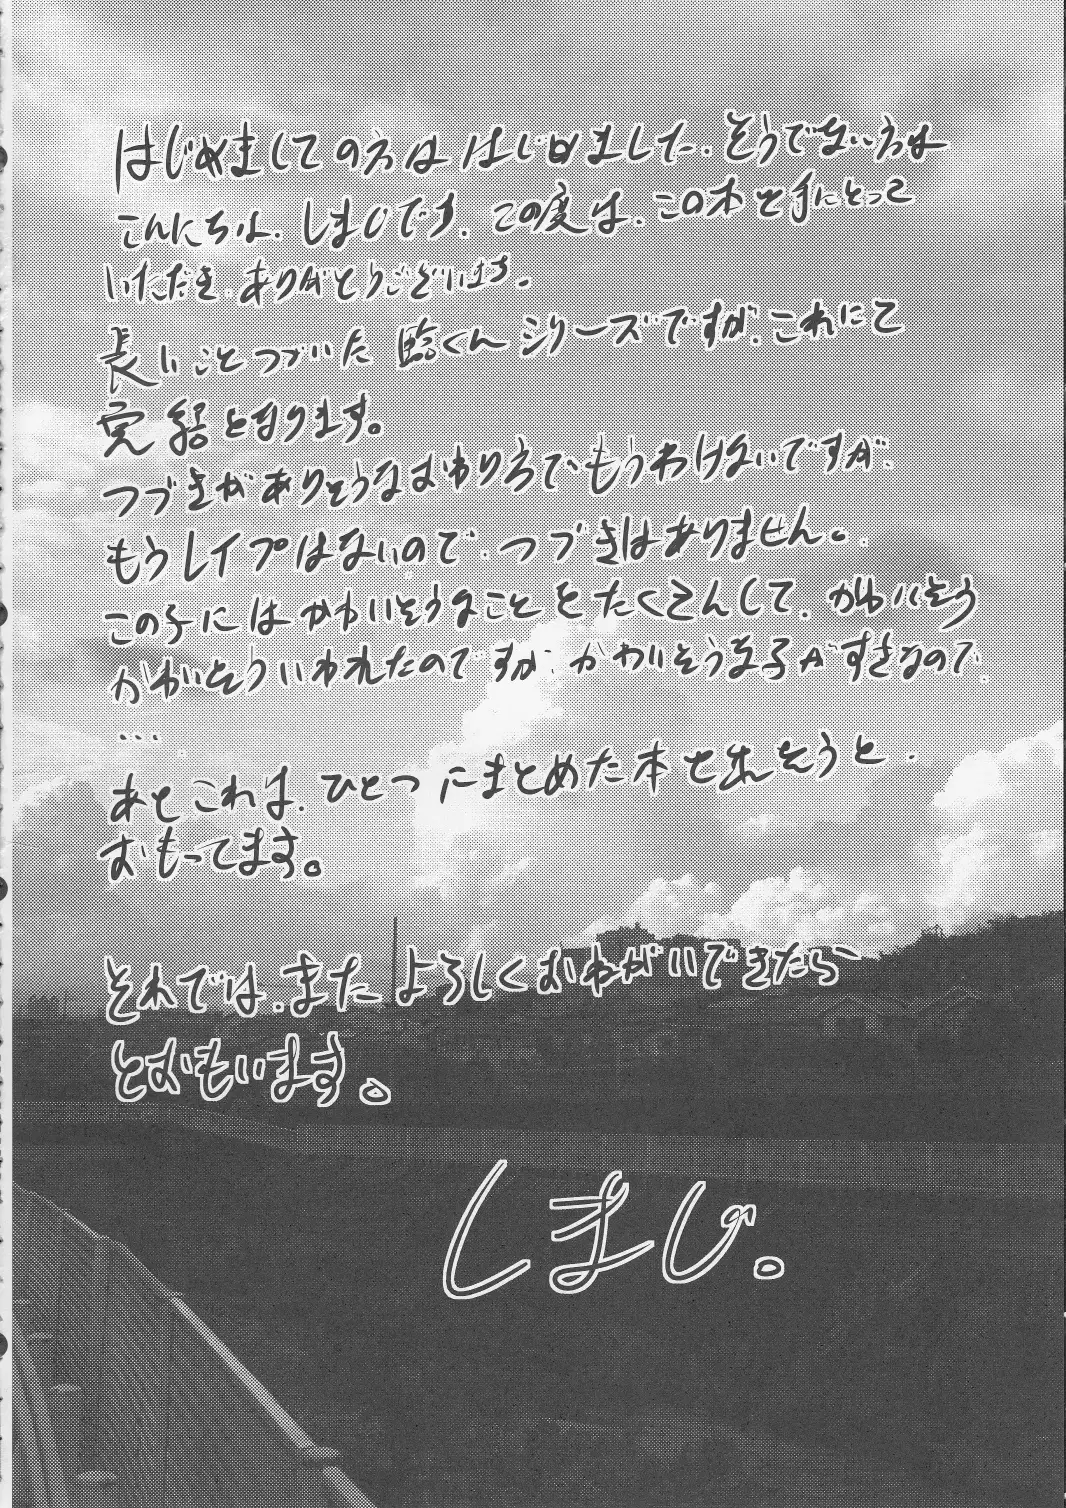 はじめましての方は はじめました. そうでない方は
こんにちは. しまじです. この度は. この本を手にとって
いただき. ありがとうございます.
長いことつづいた 臨くんシリーズですが. これにて
完結となります。
つづきがありそうなおわり方でもうわけないですが.
もうレイプはないので. つづきはありません。
この子にはかわいそうなことをたくさんして. かわいそう
かわいそういわれたのですが. かわいそうな子がすきなので.
...
あとこれは. ひとつにまとめた本を出そうと.
おもってます。
それでは. また よろしくおねがいできたら
とおもいます。
しまじ。